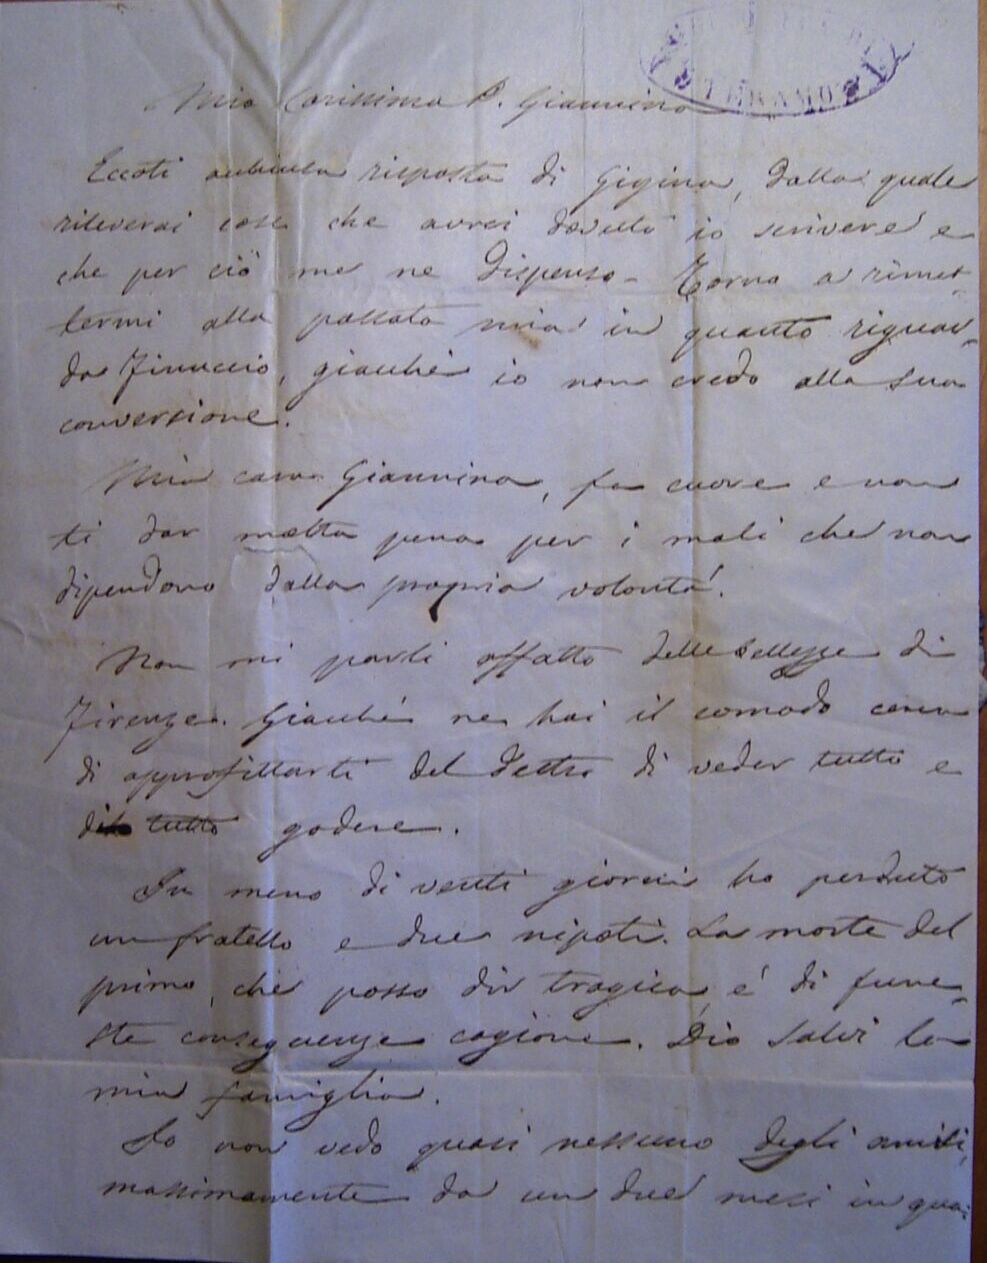 TERAMO
Mia Carissima P. Giannina
Eccoti acchiusa risposta di Gigina, dalla quale
rileverai cose che avrei dovuto io scrivere e
che per ciò me ne dispenso - Torno a rimet-
termi alla passata mia in quanto riguar-
da Finuccio, giacché io non credo alla sua
conversione.
Mia cara Giannina, fa cuore e non
ti dar molta pena per i mali che non
dipendono dalla propria volontà.
Non mi parli affatto delle bellezze di
Firenze. Giacché ne hai il comodo cerca
di approfittarti del destro di veder tutto e
di tutto godere.
In meno di venti giorni ho perduto
un fratello e due nipoti. La morte del
primo, che posso dir tragica, é di fune-
ste conseguenze cagione. Dio salvi la
mia famiglia.
Io non vedo quasi nessuno degli amici,
massimamente da un due mesi in qua: